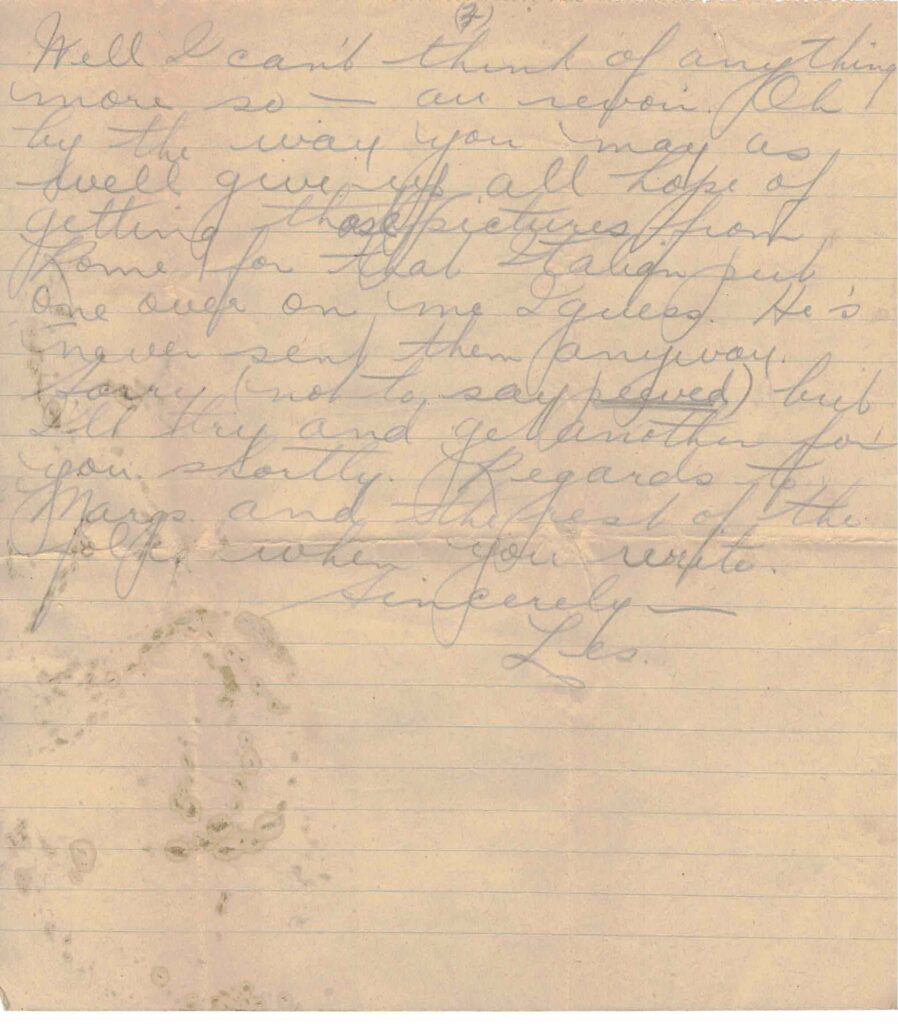 (7)
Well I can't think of anything
more so — au revoir. Oh
by the way you may as
well give up all hope of
getting those pictures from
Rome for that Italian put
one over on me I guess. He's
never sent them anyway.
Sorry (not to say peeved) but
I'll try and get another for
you shortly. Regards to
Marg. and the rest of the
folks when you write.
Sincerely —
Les.